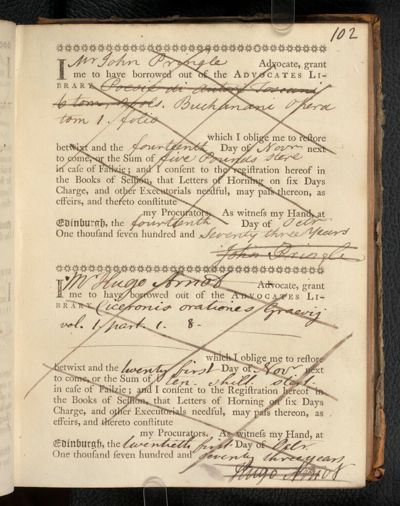 102
I Mr John Pringle Advocate, grant
me to have borrowed out of the ADVOCATES LI-
BRARY Poesie di autori Toscani
6 tom. Buchanani Opera
tom 1. folio
which I oblige me to reſtore
betwixt and the fourteenth Day of Novr next
to come, or the Sum of five Pounds sterl
in caſe of Failzie; and I conſent to the regiſtration hereof in
the Books of Seſſion, that Letters of Horning on ſix Days
Charge, and other Executorials needful, may paſs thereon, as
effeirs, and thereto conſtitute
my Procurators. As witneſs my Hand, at
Edinburgh, the fourteenth Day of Octr
One thouſand ſeven hundred and Seventy three Years
John Pringle
I Mr Hugo Arnot Advocate, grant
me to have borrowed out of the ADVOCATES LI-
BRARY Ciceronis orationes Graevij
vol. 1. part 1. 8.
which I oblige me to reſtore
betwixt and the twenty first Day of Novr next
to come, or the Sum of ten shill: sterl:
in caſe of Failzie; and I conſent to the Regiſtration hereof in
the Books of Seſſion, that Letters of Horning on ſix Days
Charge, and other Executorials needful, may paſs thereon, as
effeirs, and thereto conſtitute
my Procurators. As witneſs my Hand, at
Edinburgh, the twentieth first Day of Octr
One thouſand ſeven hundred and seventy three years
Hugo Arnot